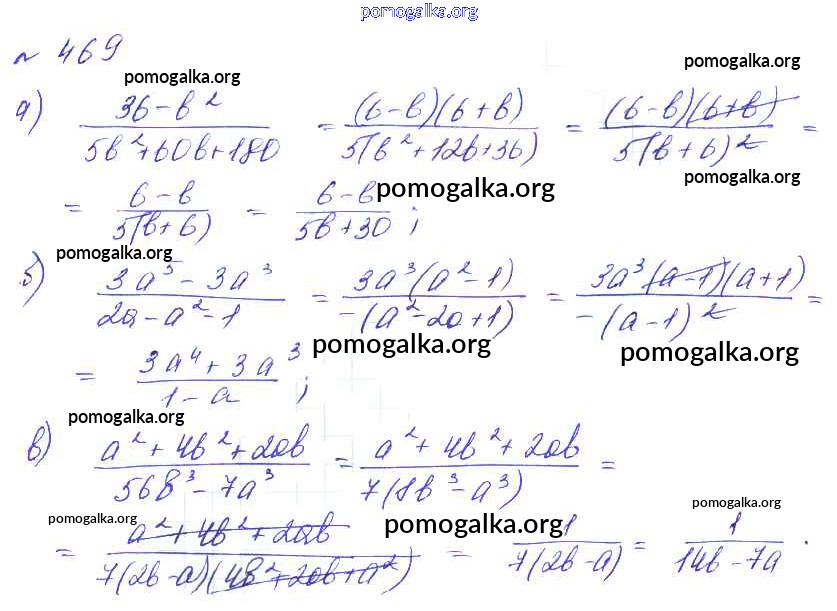 pomogalka.org
№ 469
pomogalka.org
pomogalka.org
а) (36 - b²)/(5b² + 60b + 180) = (6 - b)(6 + b)/(5(b² + 12b + 36)) = (6 - b)(6 + b)/(5(b + 6)²) =
pomogalka.org
= (6 - b)/(5(b + 6)) = (6 - b)/(5b + 30) ;
pomogalka.org
pomogalka.org
б) (3a⁵ - 3a³)/(2a - a² - 1) = 3a³(a² - 1)/(-(a² - 2a + 1)) = 3a³(a - 1)(a + 1)/(-(a - 1)²) =
pomogalka.org
pomogalka.org
= (3a⁴ + 3a³)/(1 - a) ;
pomogalka.org
в) (a² + 4b² + 2ab)/(56b³ - 7a³) = (a² + 4b² + 2ab)/(7(8b³ - a³)) =
pomogalka.org
pomogalka.org
pomogalka.org
= (a² + 4b² + 2ab)/(7(2b - a)(4b² + 2ab + a²)) = 1/(7(2b - a)) = 1/(14b - 7a) .